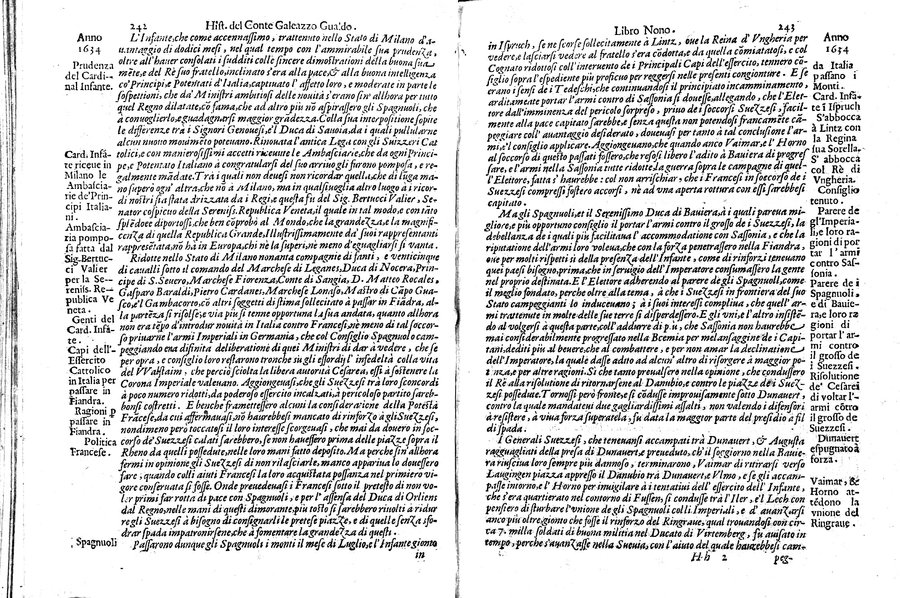 242
Hist. del Conte Galeazzo Gualdo.
Anno
1634
Prudenza
del Cardi-
nal Infante.
Card. Infã
te riceue in
Milano le
Ambascia-
rie de' Prin-
cipi Italia-
ni.
Ambascia-
ria pompo-
sa fatta dal
Sig. Bertuc-
ci Valier
per la Se-
renis. Re-
publica Ve
neta.
Genti del
Card. Infã-
te.
Capi dell'-
Essercito
Cattolico
in Italia per
passare in
Fiandra.
Ragioni p
passare in
Fiandra.
Politica
Francese.
Spagnuoli
L'Infante, che come accennassimo, trattenuto nello Stato di Milano d'a-
uantaggio di dodici mesi, nel qual tempo con l'ammirabile sua prudenza,
oltre all'hauer consolati i sudditi colle sincere dimostrationi della buona sua
mẽte, e del Rè suo fratello, inclinato s'era alla pace, & alla buona intelligenza
co' Principi, e Potentati d'Italia, cattiuato l'affetto loro, e moderate in parte le
sospettioni, che da' Ministri amoltosi delle nouità s'erano sin' allhora per tutto
quel Regno dilatate, cõ fama, che ad altro più nõ aspirassero gli Spagnuoli, che
a conuoglierlo, e guadagnarsi maggior grãdezza. Colla sua interpositione sopite
le differenze trà i Signori Genouesi, e'l Duca di Sauoia, da i quali pullularne
alcun nuouo mouimẽto poteuano. Rinouata l'antica Lega con gli Suizzeri Cat
tolici, e con manierosissimi accetti riceuute le Ambasciarie, che da ogni Princi-
pe, e Potentato Italiano a congratularsi del suo arriuo gli furono pomposa, e re-
galmente mãdate. Trà i quali non deuesi non ricordar quella, che di lũga ma-
no superò ogn' altra, che nõ à Milano, ma in qualsiuoglia altro luogo à i ricor-
di nostri sia stata drizzata da i Regi, e questa fu del Sig. Bertucci Valier, Se-
nator cospicuo della Sereniss. Republica Veneta, il quale in tal modo e con tãto
splẽdore diportossi, che ben cõprobò al Mondo, che la grandezza, e la magnifi-
cenza di quella Republica Grande, Illustrissimamente da' suoi rappresentanti
rappresentata, nõ ha in Europa, chi nè la superi, nè meno d'eguagliarsi si vanta.
Ridotte nello Stato di Milano nonanta compagnie di fanti, e venticinque
di caualli sotto il comando del Marchese di Leganes, Duca di Nocera, Prin-
cipe di S. Seuero, Marchese Fiorenza, Conte di Sangia, D. Matteo Rocales,
Gasparo Baraldi, Pietro Cardanes, Marchese Lonato, Mastro di Cãpo Gua-
sco, e'l Gambacorto, cõ altri soggetti di stima sollecitato à passar in Fiãdra, al-
la partẽza si risolse, e via più si tenne opportuna la sua andata, quanto allhora
non era tẽpo d'introdur nouità in Italia contro Francesi, nè meno di tal soccor-
so priuarne l'armi Imperiali in Germania, che col Consiglio Spagnuolo cam-
peggiando era disinita deliberatione di quei Ministri di dar à vedere, che se
per opra, e consiglio loro restarono tronche sù gli essordi l'infedeltà colla vita
del Wolstaim, che perciò sciolta la libera autorità Cesarea, essi à sostenere la
Corona Imperiale valeuano. Aggiongeuasi, che gli Suezzesi trà loro scordi
à poco numero ridotti, da poderoso essercito incalzati, à pericoloso partito sareb-
bonsi costretti. E benche framettessero alcuni la consideratione della Potestà
Frãcese, da cui affermauasi, nõ hauerebbesi mancato di rinforzo à gli Suezzesi,
nondimeno però toccatosi il loro interesse scorgeuasi, che mai da douero in soc-
corso de' Suezzesi calati sarebbero, se non hauessero prima delle piazze sopra il
Rheno da quelli possedute, nelle loro mani fatto deposito. Ma perche sin' allhora
fermi in opinione gli Suezzesi di non rilasciarle, manco appariua lo douessero
fare, quando colli aiuti Francesi la loro acquistata possanza nel primiero vi-
gore conseruata si fosse. Onde preuedeuasi i Francesi sotto il pretesto di non vo-
ler primi far rotta di pace con Spagnuoli, e per l'assensa del Duca di Orliens
dal Regno, nelle mani di questi dimorante, più tosto si sarebbero riuolti a ridur
regli Suezzesi à bisogno di consignarli le pretese piazze, e di quelle senza sfo-
drar spada impatronirsene, che à fomentare la grandezza di questi.
Passarono dunque gli Spagnuoli i monti il mese di Luglio, e l'Infante gionto
in
Libro Nono.
243
in Ispruch, se ne scorse sollecitamente à Lintz, oue la Reina d'Vngheria per
vedere, e lasciarsi vedere al fratello s'era cõdotta, e da quella cõmiatatosi, e col
Cognato ridottosi coll'interuento de i Principali Capi dell'essercito, tennero cõ-
siglio sopra l'espediente più proficuo per reggersi nelle presenti congionture. E se
erano i sensi de i Tedeschi, che continuandosi il principiato incaminamento,
arditamente portar l'armi contro di Sassonia si douesse, allegando, che l'Elet-
tore dall'imminenza del pericolo sorpreso, priuo de i soccorsi Suezzesi, facil-
mente alla pace capitato sarebbe, e senza questa non potendosi francamẽte cã-
peggiare coll' auantaggio desiderato, doueuasi per tanto à tal conclusione l'ar-
mi, e'l consiglio applicare. Aggiongeuano, che quando anco Vaimar, e l'Horno
al soccorso di questo passati fossero, che resosi libero l'adito à Bauiera di progres-
sare, e l'armi nella Sassonia intte ridotte, la guerra sopra le campagne di quel-
l'Elettore, fatta s'haurebbe: col non arrischiar, che i Francesi in soccorso de i
Suezzesi compressi fostero accorsi, nè ad vna aperta rottura con essi sarebbesi
capitato.
Ma gli Spagnuoli, et il Serenissimo Duca di Bauiera, à i quali pareua mi-
gliore, e più opportuno consiglio il portar l'armi contro il grosso de i Suezzesi, la
debellanza de i quali più facilitaua l'accommodatione con Sassonia, e che la
riputatione dell'armi loro voleua, che con la forza penetrassero nella Fiandra,
oue per molti rispetti vi è della presenza dell'Infante, come di rinforzi teneuano
quei paesi bisogno, prima, che in seruigio dell'Imperatore consumassero la gente
nel proprio destinata. E l'Elettore adherendo al parere degli Spagnuoli, come
il meglio fondato, perche oltre alla tema, à che i Suezzesi in frontiera del suo
Stato campeggianti lo induceuano; à i suoi interessi compliua, che quell'ar-
mi trattenute in molte delle sue terre si disimpegnassero. E gli vni, e l'altro insistẽ-
do al volgersi à questa parte, coll' addurre di più, che Sassonia non haurebbe
mai considerabilmente progressato nella Boemia per mission­amento de i Capi-
tani, e diti più al buono, che al combattere, e per non amar la declinatione
dell'Imperatore, la quale dasse adito ad alcun' altro di risorgere à maggior po-
tenza, e per altre ragioni. Si che tanto preualsero nella opinione, che condussero
il Rè alla risolutione di ritornarsene al Danubio, e contro le piazze da i Suez-
zesi possedute. Tornossi però fronte, e si cõdusse improuisamente sotto Dunauert,
contro la quale mandateui due gagliardissimi assalti, non valendo i difensori
à resistere, à viua forza superatola, fu data la maggior parte del presidio à fil
di spada.
I Generali Suezzesi, che teneuansi accampati trà Dunauert, & Augusta
ragguagliati della presa di Dunauert, e preueduto, ch'il soggiorno nella Bauie-
ra riusciua loro sempre più dannoso, terminarono, Vaimar di ritirarsi verso
Lauingen piazza appresso il Danubio trà Dunauert, e Vlmo, e se gli accam-
passe intorno, e l'Horno per inuigilare à i tentatiui dell'essercito dell'Infante,
che s'era quartierato nel contorno di Fussen, si condusse trà l'Iler, e'l Lech con
pensiero di disturbare l'vnione de gli Spagnuoli colli Imperiali, e d'auanzarsi
anco più oltre, gionto che fosse il rinforzo del Ringraue, qual trouandosi con cir-
ca 7. milla soldati di buona militia nel Ducato di Virtemberg, fu auisato in
tempo, perche s'auanzasse nella Sueuia, con l'aiuto del quale hauerebbesi cam-
Hh 2
peg-
Anno
1634
da Italia
passano i
Monti.
Card. Infã-
te i Ispruch
S'abbocca
à Lintz con
la Regina
sua Sorella.
S' abbocca
col Rè di
Vngheria.
Consiglio
tenuto.
Parere de
gl'Imperia-
li, e loro ra-
gioni di
portar l'ar
mi contro
Sassonia.
Parere de i
Spagnuoli,
e di Baui-
ra, e loro ra
gioni di
portar l'ar-
mi contro
il grosso de
i Suezzesi.
Risolutione
de' Cesarei
di voltar l'-
armi cõtro
il grosso de
Suezzesi.
Dunauert
espugnato à
forza.
Vaimar, &
Horno at-
tẽdono la
vnione del
Ringraue.